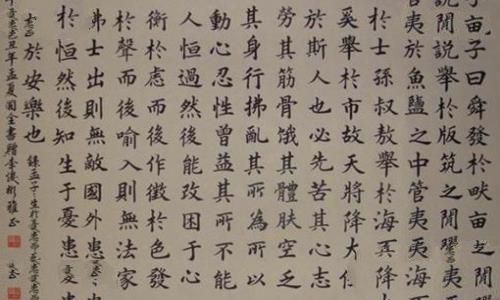 子曰舜發於畎亩
說閒說舉於版筑之閒膠
管夷於魚鹽之中管夷
於士孫叔敖舉於海
奚舉於市故天將降大任
於斯人也必先苦其心志
勞其筋骨饿其體肤空乏
其身行拂亂其所為所以
動心忍性曾益其所不能
人恒過然後能改困于心
衡於慮而後作徵於色發
於聲而後喻入則無法家
弗士出則無敵國外患
於恒然後知生于憂患
於安樂也 錄孟子生於憂患
丑年孟夏國全書贈李俊彬雅正